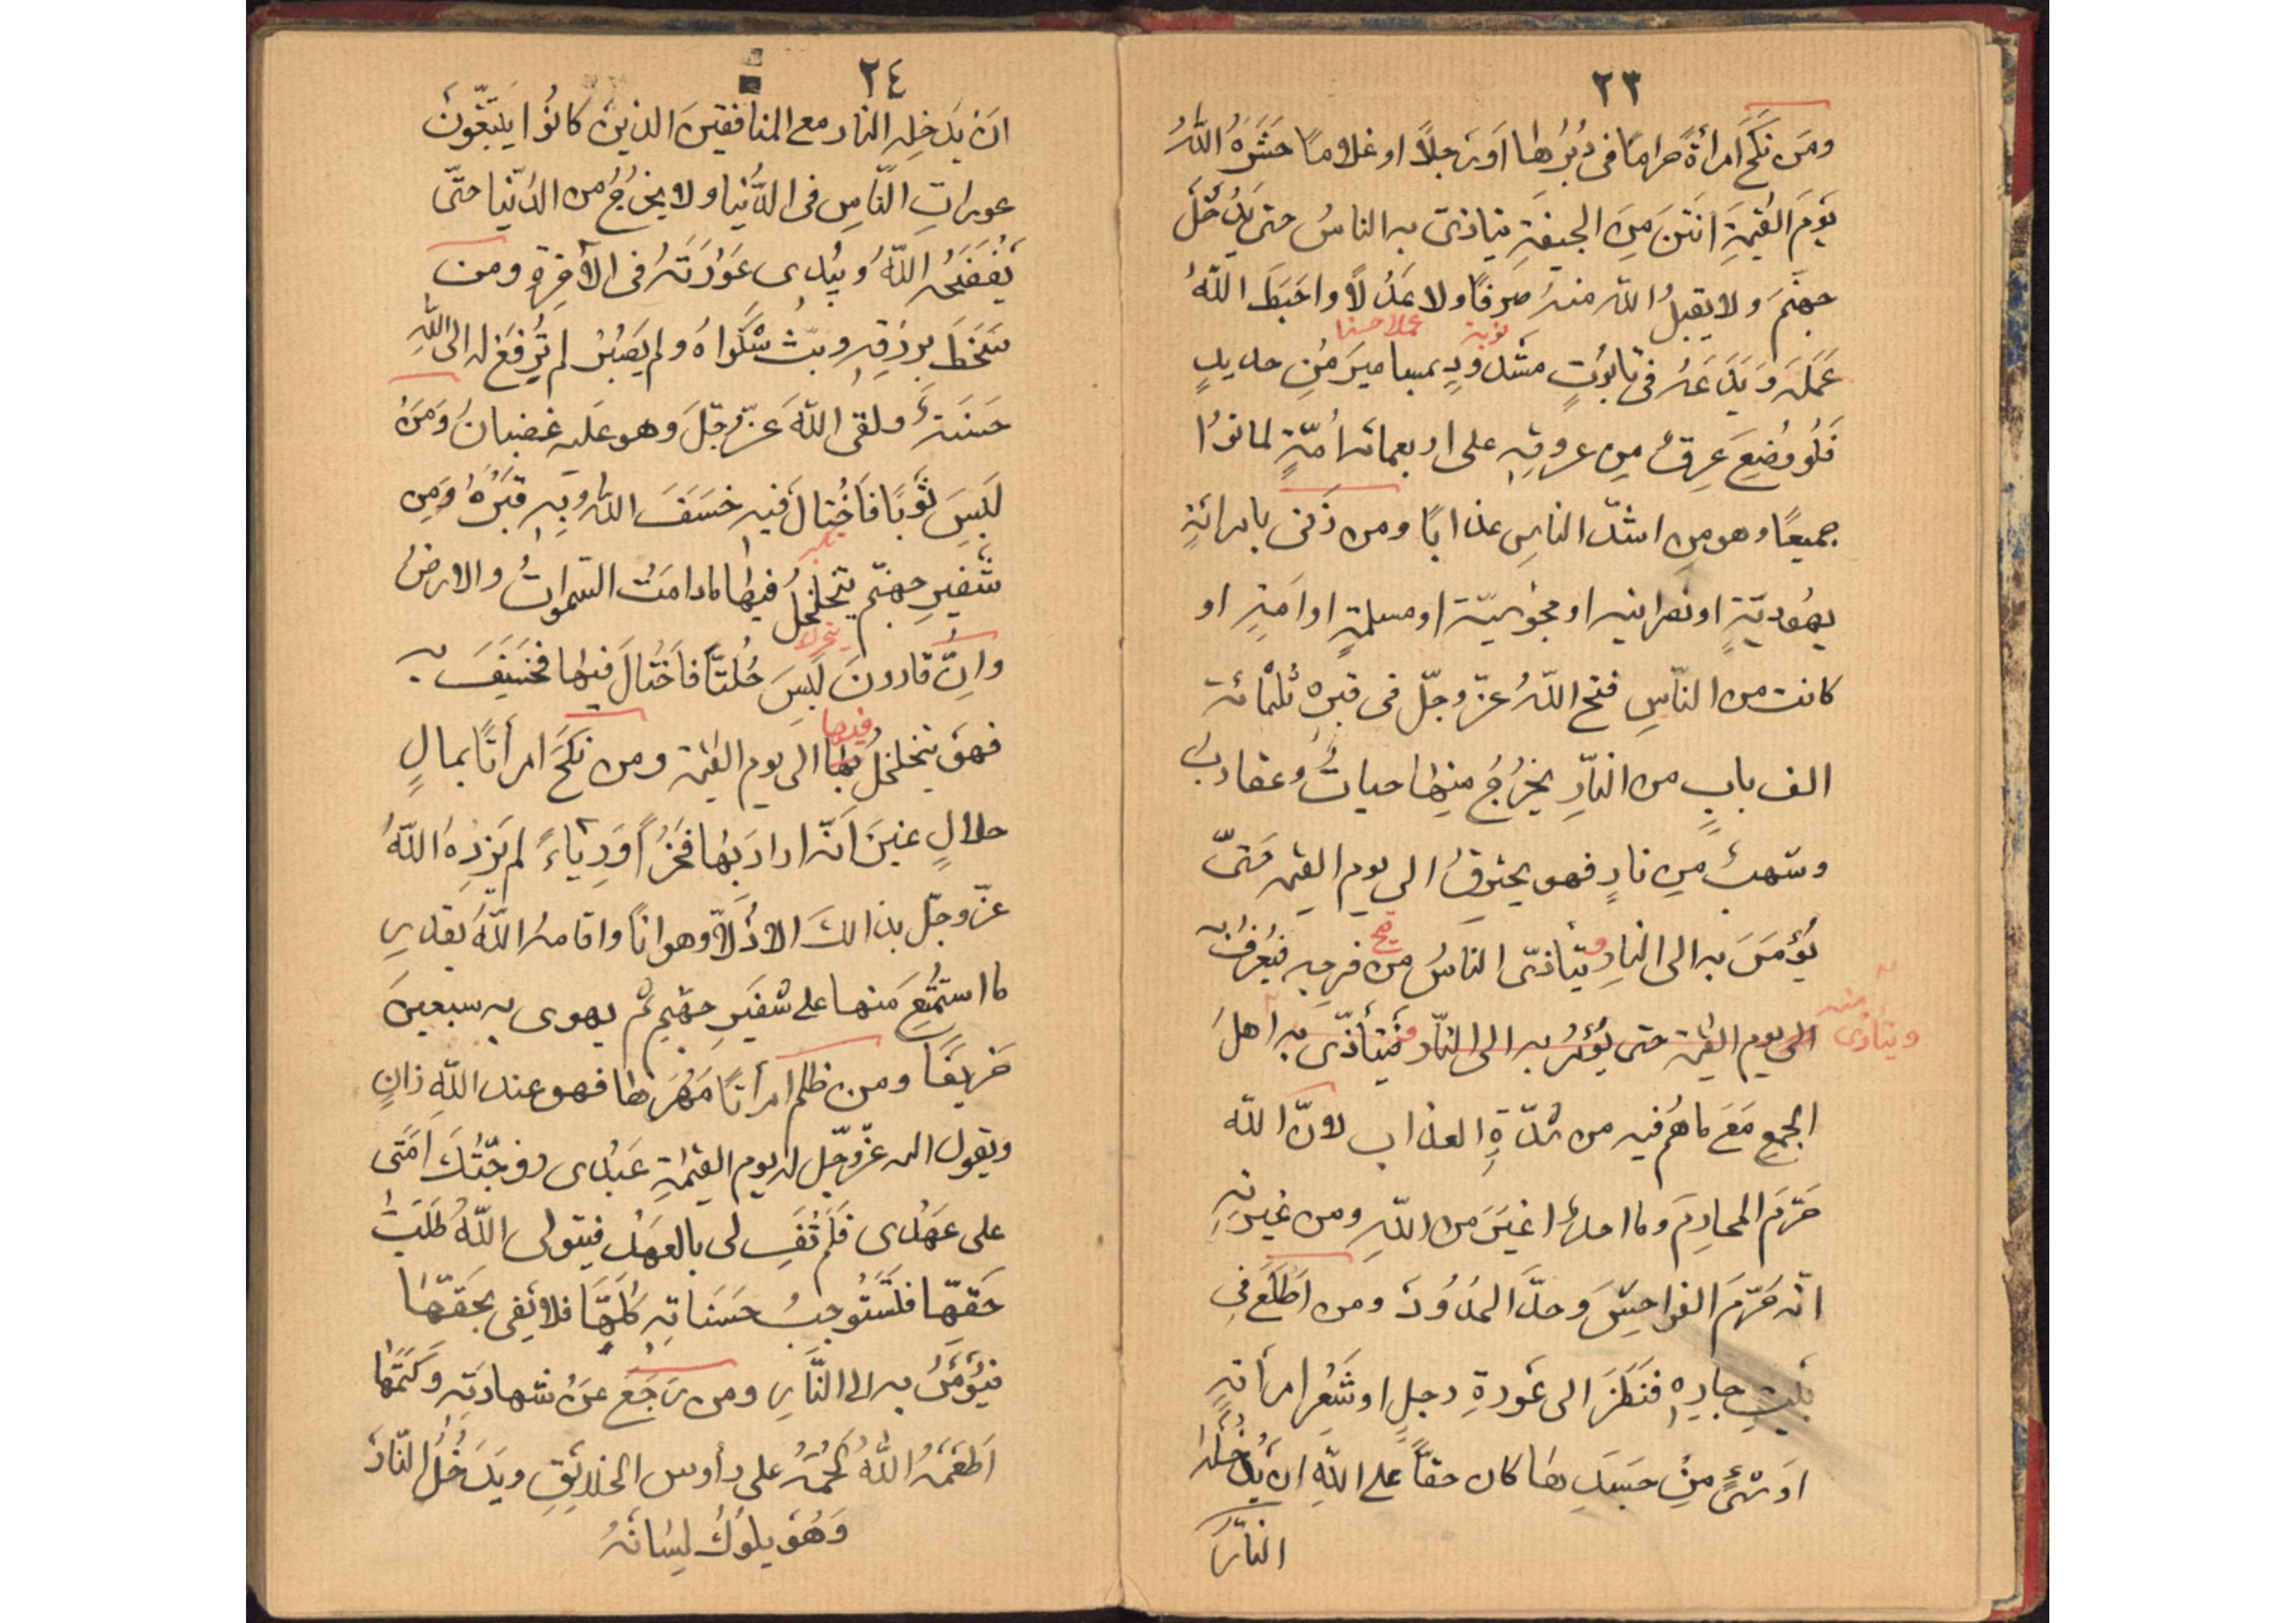 ٢٣
ومَن نَكَحَ امرأةً حرامًا فى دُبُرِها اَو رَجلاً او غلامًا حَشَرَهُ اللّٰهُ
يَومَ القيٰمةِ اَنتَنَ مِنَ الجيفةِ يتاذى به الناسُ حتى يَدخُلَ
جهنّمَ ولا يقبلُ اللّٰه منهُ صَرفًا ولا عَدلاً واحبَطَ اللّٰهُ
توبة عملا حسنا
عَمَلَه وَيَدَعُه فى تابُوتٍ مشدودٍ بمساميرَ مِن حديدٍ
فَلَو وُضِعَ عِرقٌ مِن عروقِهِ على اربعمائه اُمّةٍ لماتوا
جميعًا وهو مِن اشدّ الناسِ عذابًا ومن زَنى بامرائةٍ
يهُوديّةٍ او نصرانيه او مجوسيّة او مسلمةٍ او اَمَةٍ او
كانت من النّاسِ فتح اللّٰهُ عزّ وجلّ فى قبرِه ثلثمائة
الف بابٍ من النّارِ يخرُجُ مِنها حياتٌ وعقاربُ
وشهبٌ مِن نارٍ فهو يحترِقُ الى يومِ القيٰمه حَتّى
يُؤمَرَ به الى النارِ و يتأذّى الناسُ من قبح فرجِه فيُعرَفُ به
ويتأذى منه الى يومِ القيٰمة حتى يُؤمَرُ به الى النّار فَيتأذّى به اَهلَ
الجمعِ مَعَ ماهُم فيه من شدّةِ العذاب لانّ اللّٰه
حَرّمَ المحارِمَ وما احدٌ اغيَرَ من اللّٰهِ ومن غيرتِهِ
انّه حَرّمَ الفواحِشَ وحدَّ الحدُودَ ومن اَطلَعَ فِى
بَيتِ جارِهِ فنَظَرَ الى عَورةِ رجلٍ او شَعرِ امرأتٍه
اَو شئٍ مِن جسَدِها كان حقًّا على اللّٰهِ ان يُدخلَه
النّارَ
٢٤
ان يدخِله النّار مع المنافقينَ الذين كانُوا يَتَبّعُونَ
عوراتِ النّاسِ فى الدُنيا ولا يخرُجُ من الدُّنيا حتّى
يَفضَحُه اللّٰهُ ويبُدى عَورَتَهُ فى الآخِرةِ ومن
سَخَطَ برِزقِهِ وبثّ شكواهُ ولم يَصبُر لم تُرفَع له الى اللّٰهِ
حَسَنةٌ ولقى اللّٰهَ عَزّ وجّلَ وهو عليه غضبانُ وَمَن
لَبِسَ ثَوبًا فَاَختالَ فيه خسَفَ اللّٰهُ بِهِ قَبرُهُ وَمِن
تكبر
شَفيرِ جهنّم يتخلخلُ فيها مادامَتِ السّمٰواتُ والارضُ
وانَّ قارونَ لَبِسَ حُلّتاً فاَختالَ فيها فخُسِفَ به
فيها
فهوَ يتخلخلُ بها الى يوم القيٰمة ومن نَكَحَ امرأتاً بمالٍ
حلالٍ غيرَ اَنّه ارادَ بَها فَخراً اَو رِياءً لم يَزِدِهُ اللّٰهُ
عزّ وجلّ بذالك الا ذُلاًّ وهوانًا واقامهُ اللّٰهُ بقدرِ
ما استمتَعَ منها على شفيرِ جهنم ثم يهوى به سبعينَ
خَريفًا ومن ظلم امرأتاً مَهرَها فهو عند اللّٰهِ زانٍ
ويقول الله عزّ وجّل له يوم القيٰمةِ عَبدى زوّجتُكَ اَمَتى
على عَهدى فَلَم تَفِ لى بالعَهدِ فيتولى اللّٰهُ طَلَبَ
حَقّها فلتَستَوجِبُ حسَناتِه كُلَّها فلا يَفى بحَقّها
فيُؤمَرُ به الى النّارِ ومن رَجَعَ عن شهادتِه وكَتَمَها
اَطعَمَهُ اللّٰهُ لَحمَهُ على رأوس الخلائِقِ ويَدخُلُ النّارَ
وَهُوَ يلوُكُ لِسانَهُ